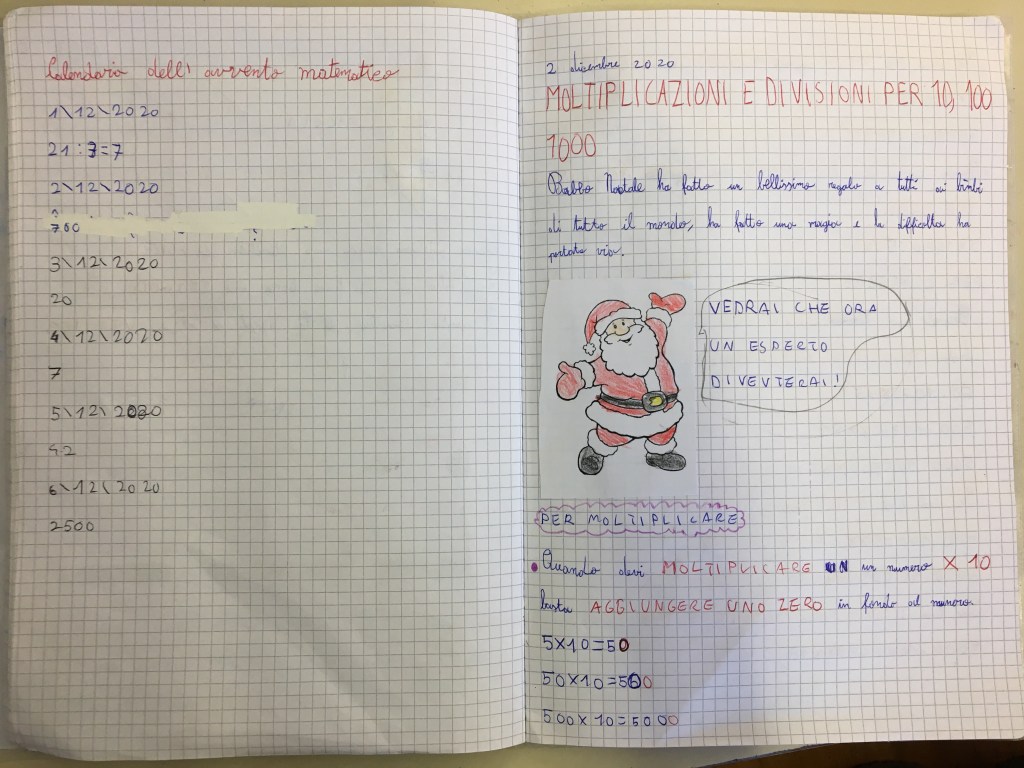 Calendario dell' avvento matematico
1\12\2020
21:3=7
2\12\2020
700
3\12\2020
20
4\12\2020
7
5\12\2020
42
6\12\2020
2500
2 dicembre 2020
MOLTIPLICAZIONI E DIVISIONI PER 10, 100
1000
Babbo Natale ha fatto un bellissimo regalo a tutti ai bimbi
di tutto il mondo, ha fatto una magia e le difficoltà ha
portate via.
VEDRAI CHE ORA
UN ESPERTO
DIVEVTERAI!
PER MOLTIPLICARE
• Quando devi MOLTIPLICARE UN un numero X 10
basta AGGIUNGERE UNO ZERO in fondo al numero
5X10=50
50X10=500
500X10=5000